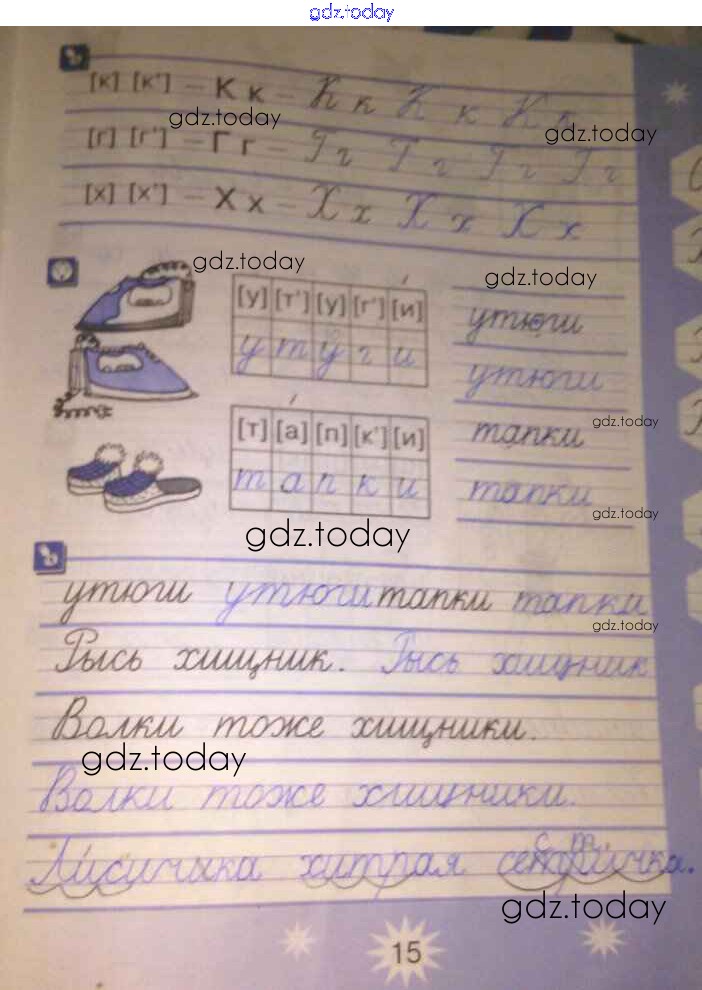 gdz.today
[к] [к'] – К к – К к К к К к
gdz.today gdz.today
[г] [г'] – Г г – Г г Г г Г г Г г
[х] [х'] – Х х – Х х Х х Х х
gdz.today gdz.today
[у] [т'] [у] [г'] [и]
у т у г и
утюги
утюги
gdz.today
[т] [а] [п] [к'] [и]
т а п к и
тапки
тапки
gdz.today
gdz.today
утюги утюги тапки тапки
gdz.today
Рысь хищник. Рысь хищник
Волки тоже хищники.
gdz.today
Волки тоже хищники.
хитрая
gdz.today
15